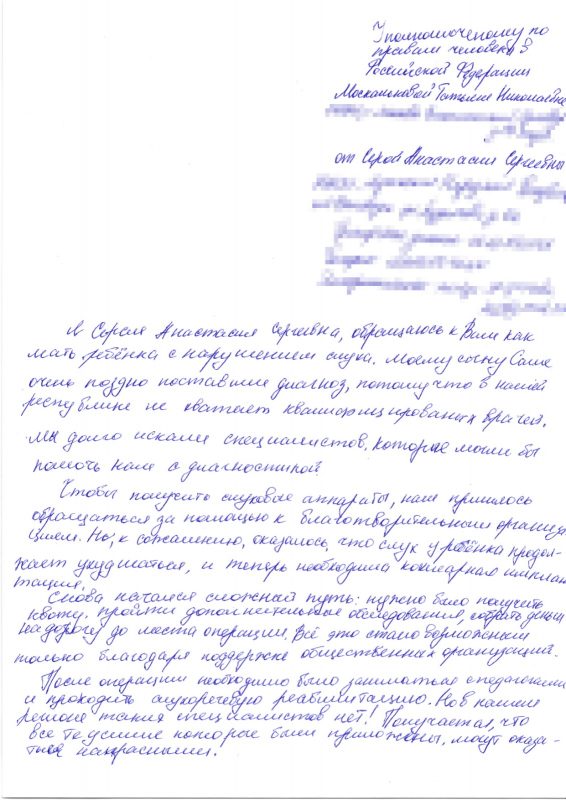 Уполномоченому по
правам человека в
Российской Федерации
Москальковой Татьяне Николаевне
от Серой Анастасии Сергеевны
Я Серая Анастасия Сергеевна, обращаюсь к Вам как
мать ребёнка с нарушением слуха. Моему сыну Саше
очень поздно поставили диагноз, потому что в нашей
республике не хватает квалифицированых врачей.
Мы долго искали специалистов, которые могли бы
помочь нам с диагностикой
Чтобы получить слуховые аппараты, нам пришлось
обращаться за помощью к благотворительным организа
циям. Но, к сожалению, оказалось, что слух у ребёнка продол-
жает ухудшаться, и теперь необходима кохлеарная имплан
тация.
Снова начался сложный путь: нужно было получить
квоту, пройти дополнительные обследования, собрать деньги
на дорогу до места операции. Всё это стало возможным
только благодаря поддержке общественных организаций.
После операции необходимо было заниматься с педагогами
и проходить слухоречевую реабилитацию. Но в нашем
регионе таких специалистов нет! Получается, что
все те усилия которые были приложены, могут оказа-
ться напрасными.